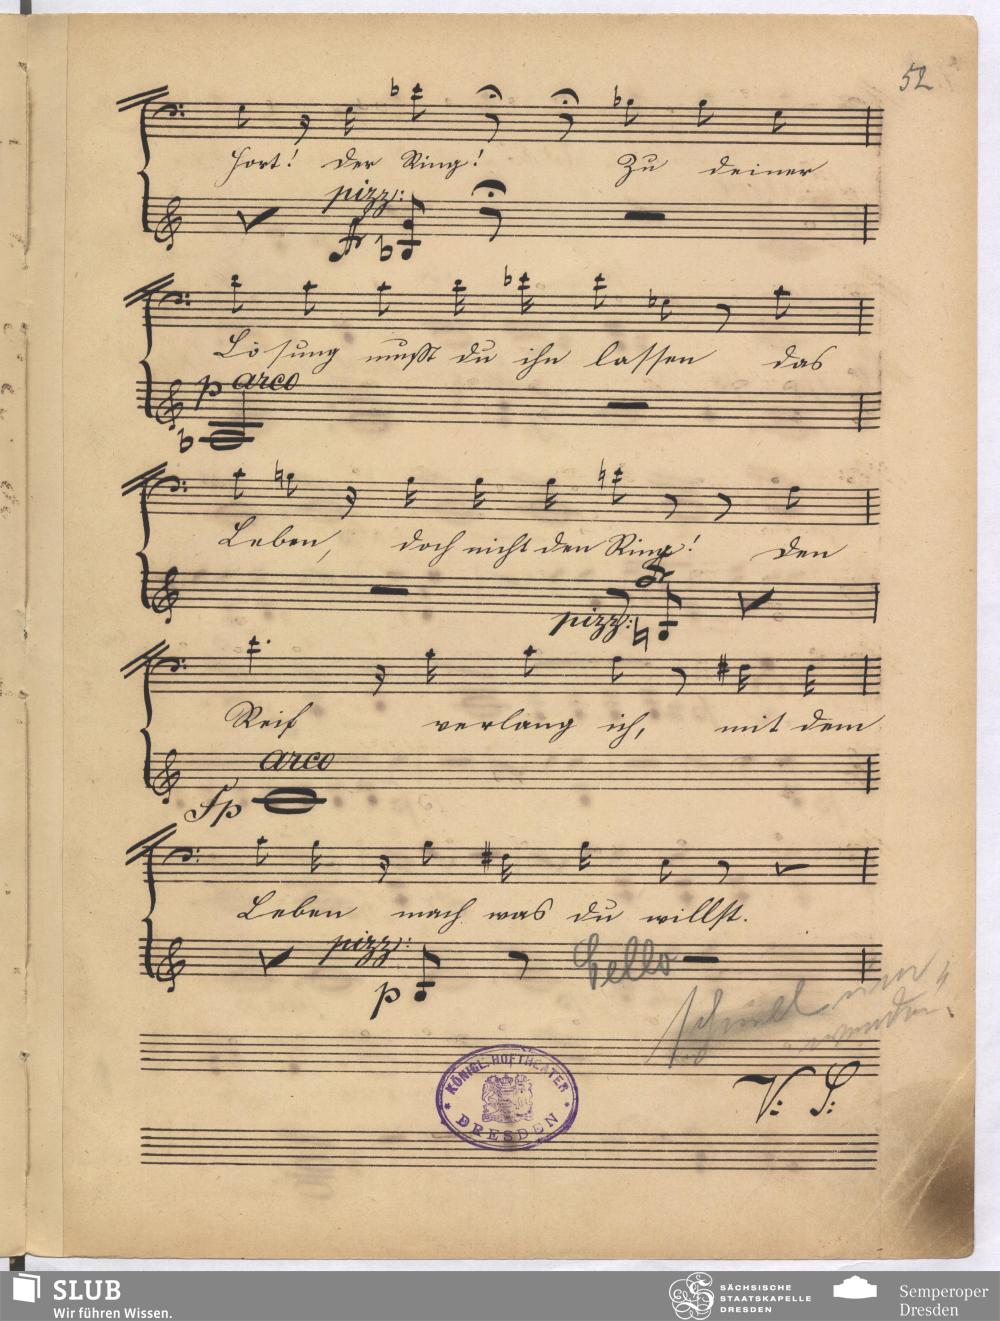 52
Hort! der Ring! Zu deiner
pizz:
f
Lösung musst du ihn lassen das
p arco
Leben, doch nicht den Ring! den
f
pizz:
Reif verlang ich, mit dem
arco
fp
Leben mach was du willst.
pizz:
p
Cello
schnell um
wenden!
V: S:
KÖNIGL. HOFTHEATER
DRESDEN
SLUB
Wir führen Wissen.
SÄCHSISCHE
STAATSKAPELLE
DRESDEN
Semperoper
Dresden